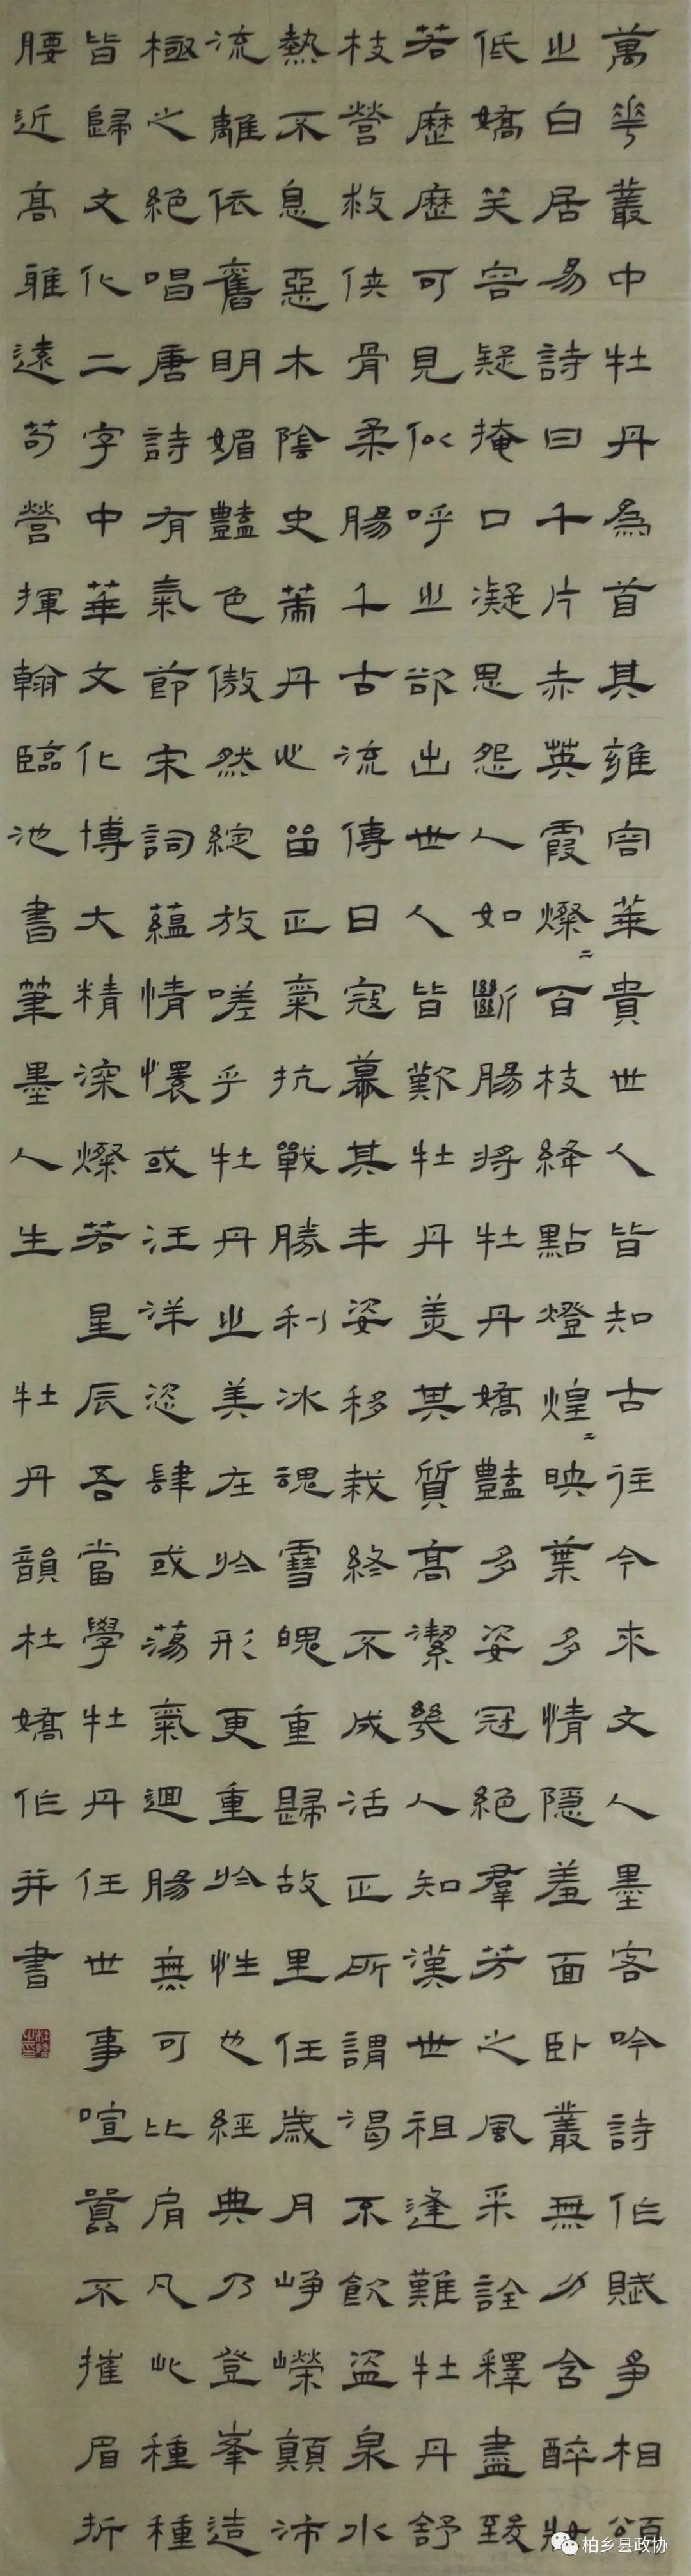 萬花叢中牡丹為首其雍容華貴世人皆知古往今來文人墨客吟詩作賦爭相頌
之白居易詩曰千片赤英霞燦〻百枝絳點燈煌〻映葉多情隱羞面臥叢無力含醉妝
低嬌笑容疑掩口凝思怨人如斷腸將牡丹嬌豔多姿冠絕群芳之風采詮釋盡致
若歷歷可見似呼之欲出世人皆歎牡丹美其質高潔幾人知漢世祖逢難牡丹舒
枝營救俠骨柔腸千古流傳日寇慕其丰姿移栽終不成活正所謂渴不飲盜泉水
熱不息惡木陰史蕭丹心留正氣抗戰勝利冰魂雪魄重歸故里任歲月崢嶸顛沛
流離依舊明媚豔色傲然綻放嗟乎牡丹之美在於形更重於性也經典乃登峯造
極之絕唱唐詩有氣節宋詞蘊情懷或汪洋恣肆或蕩氣迴腸無可比肩凡此種種
皆歸文化二字中華文化博大精深燦若星辰吾當學牡丹任世事喧囂不摧眉折
腰近高雅遠苟營揮翰臨池書筆墨人生 牡丹韻杜嬌作并書
柏乡县政协